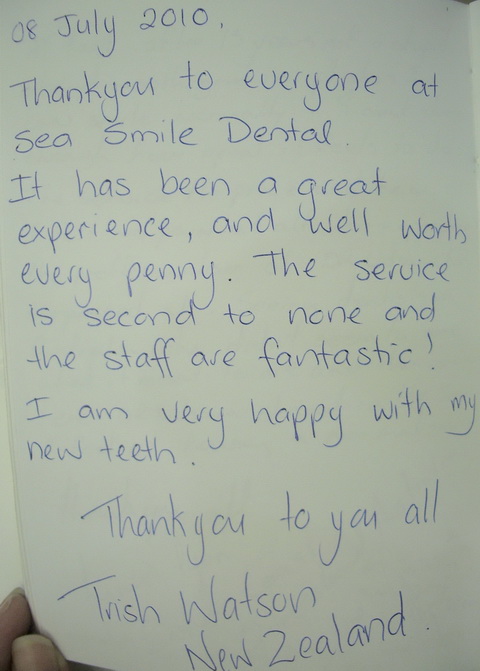 08 July 2010.
Thankyou to everyone at
Sea Smile Dental.
It has been a great
experience, and well worth
every penny. The service
is second to none and
the staff are fantastic!
I am very happy with my
new teeth.
Thankyou to you all
Trish Watson
New Zealand.